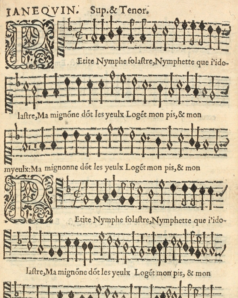 IANEQVIN. Sup. & Tenor.
P
Etite Nymphe folastre, Nymphette que i'ido-
lastre, Ma mignõne dõt les yeulx Logẽt mon pis, & mon
myeulx: Ma mignonne dõt les yeulx Logẽt mon pis, & mon
P
Etite Nymphe folastre, Nymphette que i'ido-
lastre, Ma mignõne dõt les yeulx Logẽt mon pis, & mon